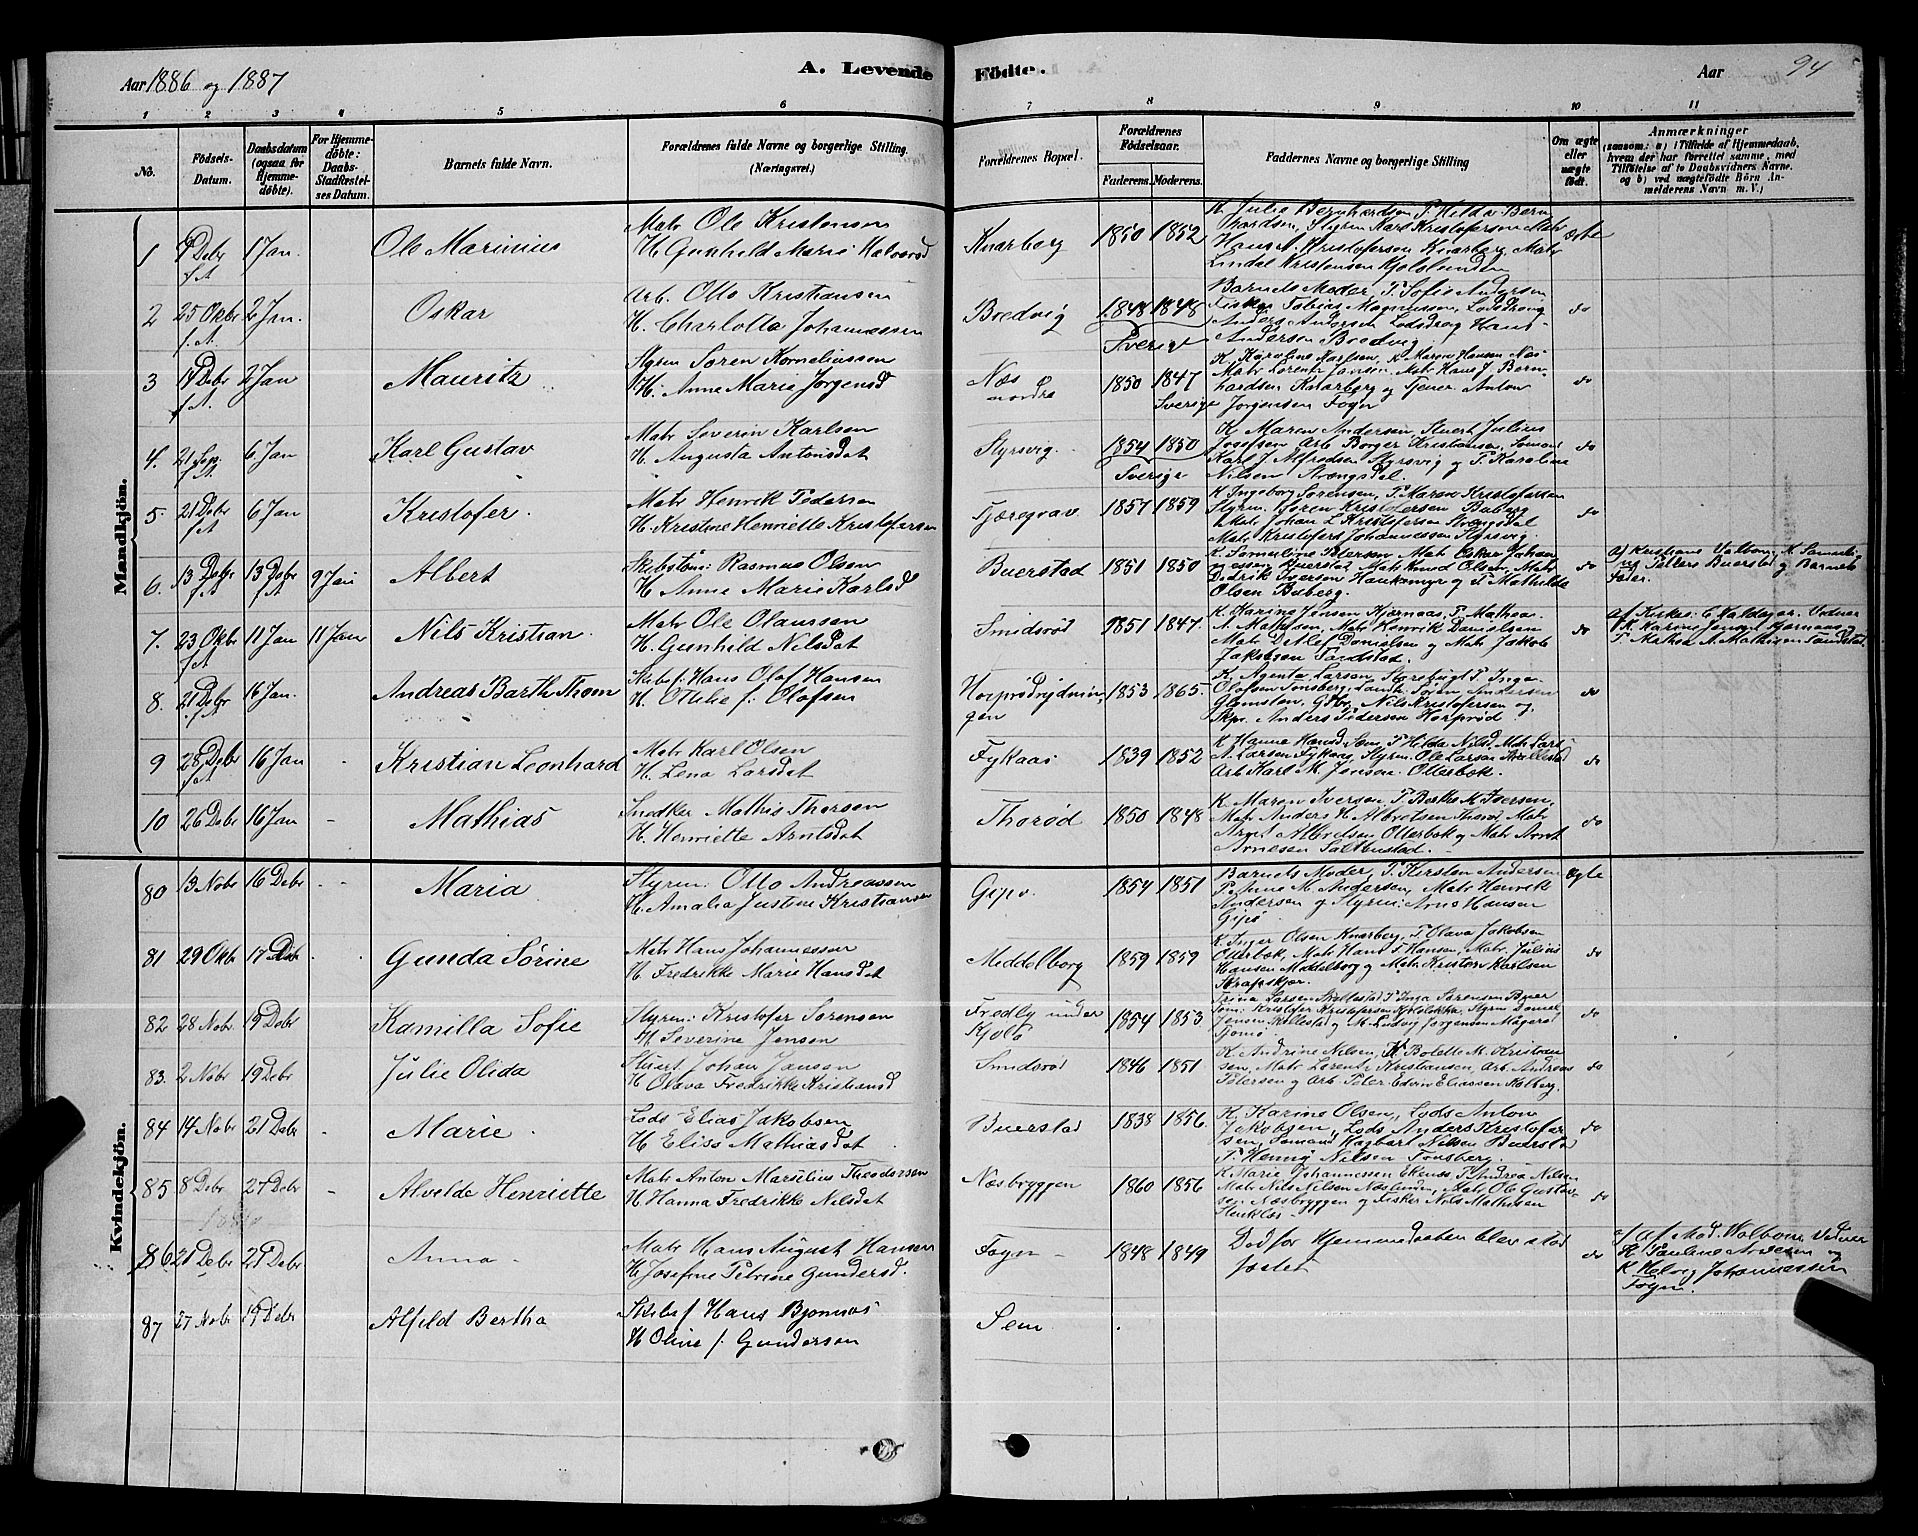 Aar 1886 og 1887
A. Levende Födte.
Aar
94
1 2 3 4 5 6 7 8 9 10 11
No.
Födsels-Datum.
Daabsdatum (ogsaa for Hjemme-døbte).
For Hjemme-døbte: Daabs-Stadfæstel-ses Datum.
Barnets fulde Navn.
Forældrenes fulde Navne og borgerlige Stilling. (Næringsvei.)
Forældrenes Bopæl.
Forældrenes Födselsaar.
Faderens. Moderens.
Faddernes Navne og borgerlige Stilling
Om ægte eller uægte født.
Anmærkninger
(saasom: a) i Tilfælde af Hjemmedaab, hvem der har forrettet samme, med Tilføielse af to Daabsvidners Navne, og b) ved uægtefödte Börn Anmelderens Navn m. V.)
Mandkjön.
1 Debr f.A 1 Jan. Ole Marinius
Matr Ole Kristensen
H. Gunhild Marie Halvorsd
Knarberg 1850 1852
K. Julie Bernhardsen P. Hilda Bern
hardsen, Styrm Karl Kristofersen Matr
Hans A. Kristofersen Knarberg, Matr
Lindal Kristensen
ægte
2 25 Okbr f.A. 2 Jan. Oskar
Arb. Otto Kristiansen
H. Charlotte Johannessen
Bredvig 1848 1848 Sverige
Barnets Moder, P. Sofie Andersen,
Fisker Tobias Magnussen, Lodsdrög
Anders Andersen Lodsdrög Hans
Andersen Bredvig
do
3 14 Debr f.A. 2 Jan Mauritz
Styrm Sören Korneliussen
H. Anne Marie Jörgensd
Næs nordre 1850 1847 Sverige
K. Karoline Karlsen, K. Maren Hansen Næs
Matr Lorentz Jansen, Matr Hans J. Bern-
hardsen Knarberg og Tjener Anton
Jörgensen Föyn
do
4. 21 Sep. f.A 6 Jan Karl Gustav
Matr Severin Karlsen
H. Augusta Antonsdat
Styrsvig. 1854 1850 Sverige
K. Maren Andersen, Stuert Julius
Josefsen Arb. Borger Kristiansen, Sömand
Karl J. Alfredsen Styrsvig og P. Karoline
Nilsen Strengsdal.
do
5. 21 Debr f.A 6 Jan Kristofer.
Matr Henrik Pedersen
H. Kristine Henriette Kristofersen
Tjæregrav 1857 1859
K. Ingeborg Sörensen, P. Maren Kristofersen
Styrm. Sören Kristofersen Buberg
Matr Johan L. Kristofersen Strengsdal
Matr Kristofer Johannessen Styrsvig.
do
6. 13 Debr f.A 13 Debr f.A 9 Jan Albert
Skibstöm: Rasmus Olsen
H. Anne Marie Karlsd
Buerstad 1851 1850
K. Sameline Petersen Matr Oskar Johan
nessen Buerstad, Matr Knud Olsen, Matr
Didrik Iversen Haukemyr og P. Mathilda
Olsen Buberg.
do
af Kristiane Valbom, K. Sameli
ne Petters Buerstad og Barnets
Fader.
7. 23 Okbr f.A 11 Jan 11 Jan Nils Kristian.
Matr Ole Olaussen
H. Gunhild Nilsdat
Smidsröd 1851 1847.
K. Karine Jensen Hjernaas, P. Mathea
N. Mathisen, Matr Henrik Danielsen
Matr Detlef Danielsen og Matr Jakob
Jakobsen Tandstad.
do
8. 21 Debr f.A 16 Jan. Andreas Barth Thom
Skibsf. Hans Olaf Hansen
H. Othilie f. Olofsen
Horpröd 1853 1865.
K. Agenta Larsen Storebugt P. Inga
Olofsen Tönsberg,
Glomsten, Gbr. Nils Kristofersen og
Skpr. Anders Pedersen Horpröd
do
9 28 Debr f.A 16 Jan Kristian Leonhard
Matr Karl Olsen
H. Lena Larsdat
Fykaas 1839 1852
K. Hanna Hansd. Sem, P. Hilda Nilsd, Matr Lars
A. Larsen Fykaas, Styrm. Ole Larsen Skallestad
Arb. Karl M. Jensen. Otterbæk.
do
10 26 Debr 16 Jan Mathias
Snedker Mathis Thorsen
H. Henriette Arntsdat
Thoröd 1850 1848
K. Maren Iversen,
Matr Anders H. Albretsen Thoröd, Matr
Arnt Albretsen Otterbæk og Matr Arnt
Arnesen Saltbustad.
do
Kvindekjön.
80 13 Nobr 16 Debr Maria
Styrm: Otto Andreassen
H. Amalia Justine Kristiansen
Gipö. 1854 1851
Barnets Moder, P. Kirsten Andersen
P. Anne M. Andersen, Matr Henrik
Andersen og Styrm: Arne Hansen
Gipö
Ægte
81 29 Okbr 17 Debr Gunda Sørine
Matr Hans Johannessen
H Fredrikke Marie Hansdat
Middelborg 1859 1859
K. Inger Olsen Knarberg, P. Olava Jakobsen
Otterbæk, Matr Hans F. Hansen, Matr Julius
Hansen Middelborg og Matr Kristen Karlsen
do
82 28 Nobr 19 Debr Kamilla Sofie
Styrm: Kristofer Sörensen
H Severine Jensen
Fredly under Kjölö 1854 1853
Trina Larsen Skallestad P. Inga Sörensen Buer
Töm: Kristofer Kristofersen Kjölölökke, Styrm Daniel
Jensen Skallestad og M. Ludvig Jörgensen Mågerö
Tjömö
do
83. 2 Nobr 19 Debr Julie Olida
Stuert Johan Jansen
H Olava Fredrikke Kristiansd
Smidsröd 1846 1851
K. Andrine Nilsen, K Bolette M. Kristian
sen, Matr Lorentz Kristiansen, Arb. Andreas
Petersen og Arb. Peter Edvin Eliassen Kolberg.
do
84 14 Nobr 21 Debr Marie.
Lods Elias Jakobsen
H Elise Mathiasdat
Buerstad 1838 1856.
K. Karine Olsen, Lods Anton
Jakobsen, Lods Anders Kristofer
sen, Sömand Hagbart Nilsen Buerstad
P. Henny Nilsen Tönsberg.
do
85 8 Debr 27 Debr Alvelde Henriette
Matr Anton Marselius Theodorsen
H. Hanna Fredrikke Nilsdat
Næsbryggen 1860 1856
K. Marie Johannessen Ekenes, P. Andrea Nilsen
Matr Nils Nilsen Næslinden, Matr Ole Gustav-
sen Næsbryggen og Fisker Nils Mathisen
do
86 21 Debr 21 Debr Anna
Matr Hans August Hansen
H. Josefine Petrine Gundersd.
Föyn 1848 1849
Död för Hjemmedaaben blev stad
fæstet.
do
af Mad. Walbom, Vidner
K. Pauline Andersen og
K Helvig Johannessen
Föyn.
87 27 Nobr 19 Debr Alfild Bertha
Skibsf Hans Bjonnæs
H Olive f. Gundersen
Sem